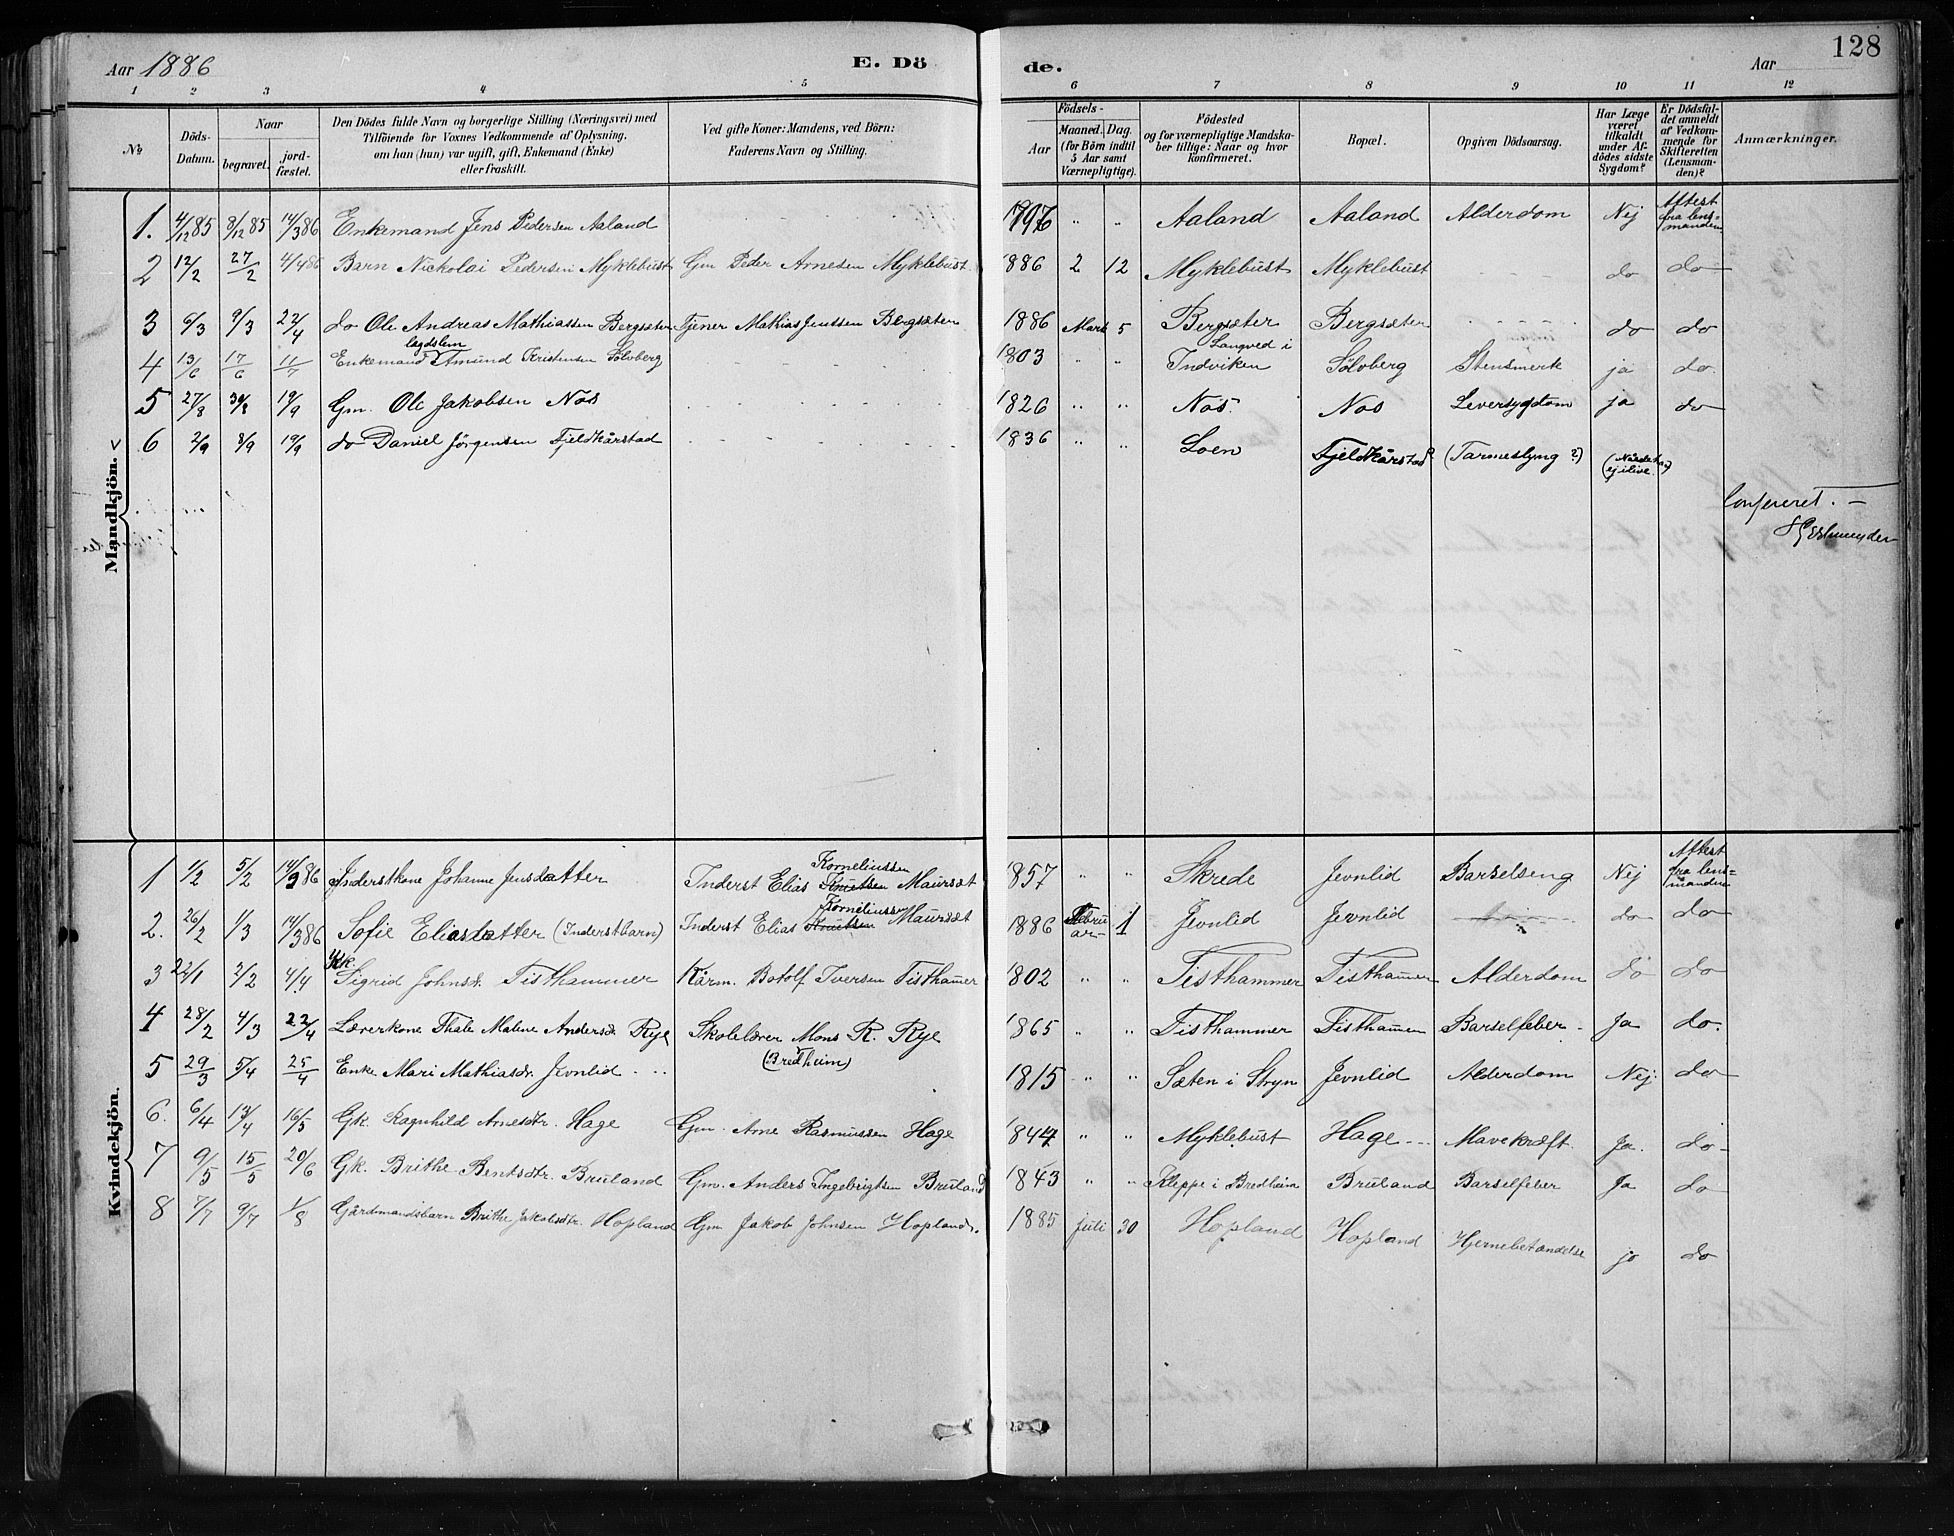 128
Aar 1886 E. Dö de. Aar
1 2 3 4 5 6 7 8 9 10 11 12
№
Döds-Datum.
Naar
begravet.
jord-fæstet.
Den Dödes fulde Navn og borgerlige Stilling (Næringsvei) med
Tilföiende for Voxnes Vedkommende af Oplysning,
om han (hun) var ugift, gift, Enkemand (Enke)
eller fraskilt.
Ved gifte Koner: Mandens, ved Börn:
Faderens Navn og Stilling.
Födsels-
Aar
Maaned. Dag.
(for Börn indtil
5 Aar samt
Værnepligtige).
Födested
og for værnepligtige Mandska-
ber tillige: Naar og hvor
konfirmeret.
Bopæl.
Opgiven Dödsaarsag.
Har Læge
været
tilkaldt
under Af-
dödes sidste
Sygdom?
Er Dödsfal-
det anmeldt
af Vedkom-
mende for
Skifteretten
(Lensman-
den)?
Anmærkninger.
Mandkjön.
1. 4/12 85 8/12 85 14/3 86 Enkemand Jens Pedersen Aaland 1797 " " Aaland Aaland Alderdom Nej Attest fra lens=manden
2 12/2 27/2 4/4 86 Barn Nickolai Pedersen Myklebust Gm Peder Arnesen Myklebust 1886 2 12 Myklebust Myklebust do do
3 6/3 9/3 22/4 do Ole Andreas Mathiassen Bergsæter Tjener Mathias Jenssen Bergsæter 1886 Marts 5 Bergsæter Bergsæter do do
4 13/6 17/6 11/7 Enkemand lægdslem Amund Kristensen Sölvberg 1803 " " Langved i Indviken Sölvberg Stensmerk ja do.
5 27/8 30/8 19/9 Gm. Ole Jakobsen Nos 1826 " " Nos. Nos Leversygdom ja do
6 2/9 8/9 19/9 do Daniel Jörgensen Fjeldkårstad 1836 " " Loen Fjeldkårstad (Tarmeslyng?) ej ilive
Confereret. —
Kvindekjön.
1 1/2 5/2 14/3 86 Inderstkone Johanne Jensdatter Inderst Elias Knutsen Korneliussen Maursæt 1857 " " Skrede Jevnlid Barselseng Nej Attest fra lens=manden
2. 26/2 1/3 14/3 86 Sofie Eliasdatter (Inderstbarn) Inderst Elias Knutsen Korneliussen Maursæt 1886 Februar 1 Jevnlid Jevnlid do do
3 22/1 2/2 4/4 Kk. Sigrid Johnsdr. Tisthammer Kårm. Botolf Iversen Tisthamer 1802 " " Tisthammer Tisthamer Alderdom do do
4 28/2 4/3 22/4 Lærerkone Thale Malene Andersdr. Rye Skolelærer Mons R. Rye (Bredheim) 1865 " " Tisthammer Tisthamer Barselfeber Ja do.
5 29/3 5/4 25/4 Enke Mari Mathiasdr. Jevnlid 1815 " " Sæten i Stryn Jevnlid Alderdom Nej. do
6. 6/4 13/4 16/5 Gk. Ragnhild Arnesdtr. Hage Gm. Arne Rasmussen Hage 1844 " " Myklebust Hage Mavekræft. Ja. do
7 9/5 15/5 20/6 Gk. Brithe Bentsdtr. Bruland Gm. Anders Ingebrigtsen Bruland 1843 " " Kleppe i Bredheim Bruland Barselfeber Ja do
8 4/7 9/7 1/8 Gårdmandsbarn Brithe Jakobsdtr. Hopland Gm Jakob Johnsen Hopland. 1885 juli 30 Hopland Hopland Hjernebetændelse jo do